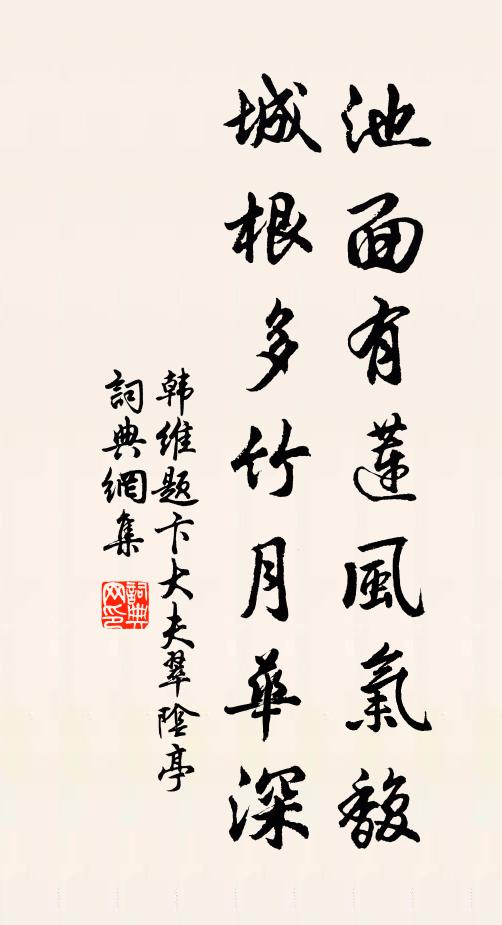 池面有蓮風氣馥
城根多竹月華深
韩維题卞大夫翠陰亭
詞典網集
詞典网印